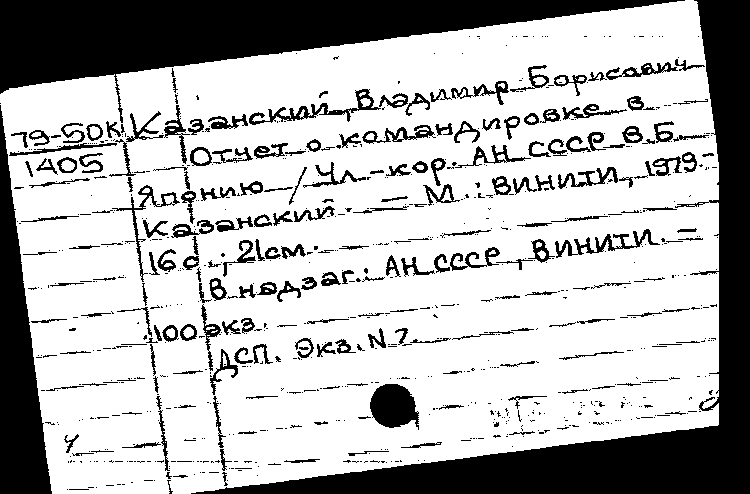 79-50К Казанский, Владимир Борисович
1405 Отчет о командировке в
Японию / Чл.-кор. АН СССР В.Б.
Казанский. — М.: ВИНИТИ, 1979.-
16 с.; 21см.
В надзаг.: АН СССР, ВИНИТИ. —
100 экз.
ДСП. Экз. N 7.